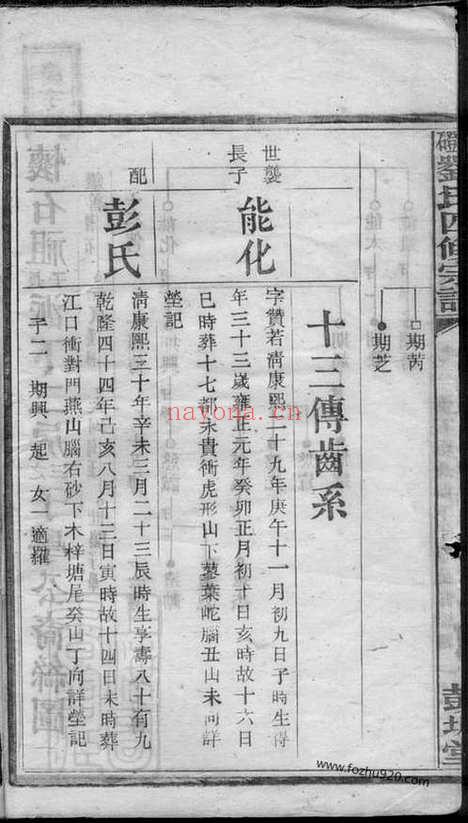 劉氏四修宗譜
彭城堂
期芮
期芝
十三傳齒系
世襲
長子
能化
字贊若淸康熙二十九年庚午十一月初九日子時生得
年三十三歲雍正元年癸卯正月初十日亥時故十六日
巳時葬十七都永貴衝虎形山下蓼葉崐腦丑山未向詳
塋記
配
彭氏
淸康熙三十年辛未三月二十三辰時生享壽八十有九
乾隆四十四年己亥八月十三日寅時故十四日未時葬
江口衝對門燕山腦右砂下木梓塘尾癸山丁向詳塋記
子二 期興、起 女一適羅
nayona.cn
www.fozhu920.com